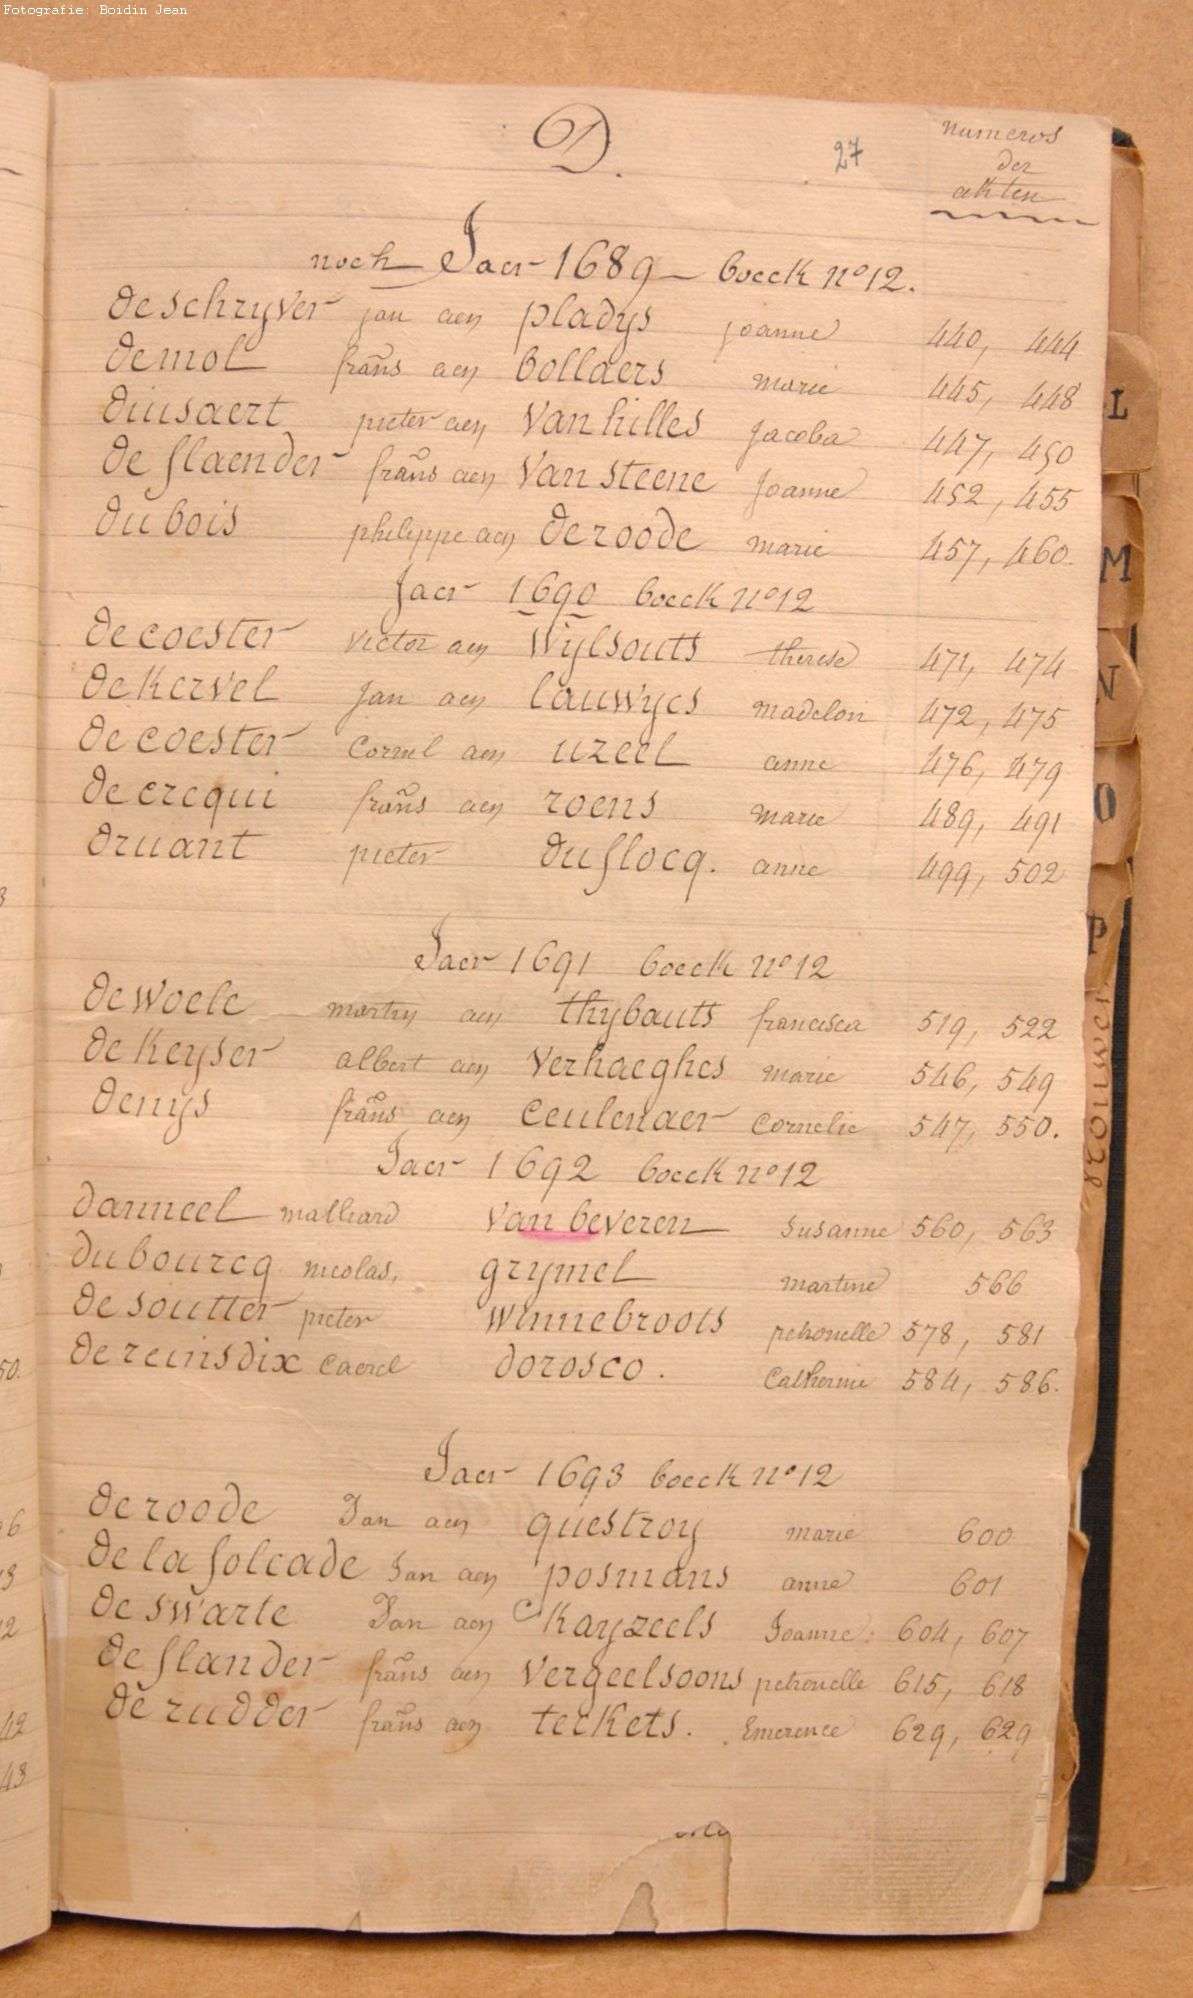 Fotografie: Boidin Jean
D.
27
numeros
der
akten
noch Jaer 1689 boeck no 12.
de schryver jan aen pladys joanne 440, 444
de mol frans aen bollaers marie 445, 448
duisaert pieter aen van hilles jacoba 447, 450
de flaender frans aen van steene joanne 452, 455
du bois philippe aen de roode marie 457, 460.
Jaer 1690 boeck no 12
de coester victor aen Wylsouts therese 471, 474
de kervel jan aen lauwycs madelon 472, 475
de coester cornel aen uzeel anne 476, 479
de crequi frans aen roens marie 489, 491
druant pieter duflocq. anne 499, 502
Jaer 1691 boeck no 12
de woele martin aen thybauts francisca 519, 522
de keyser albert aen verhaeghes marie 546, 549
denys frans aen ceulenaer cornelie 547, 550.
Jaer 1692 boeck no 12
danneel malliard van beveren susanne 560, 563
du bourcq nicolas, grymel martine 566
de soutter pieter winnebroots petronelle 578, 581
de reinsdix caerel dorosco. catherine 584, 586.
Jaer 1693 boeck no 12
de roode Jan aen questroy marie 600
de la folcade Jan aen posmans anne 601
de swarte Jan aen Kayzeels Joanne: 604, 607
de flander frans aen vergeelsoons petronelle 615, 618
de rudder frans aen terkets. Emerence 629, 629
L
M
N
O
P
50.
42
43